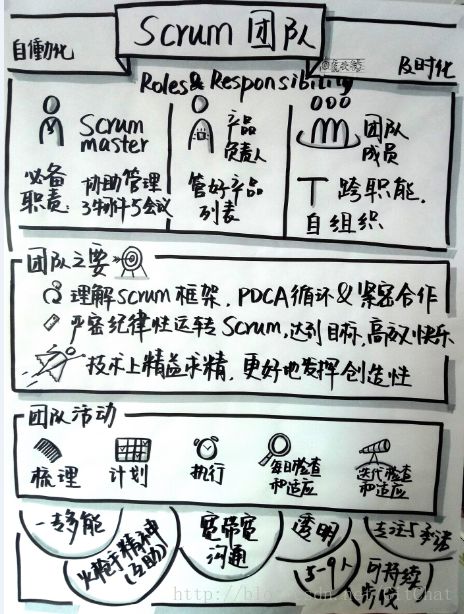 Scrum 团队
自働化
及时化
Roles & Responsibility
Scrum
master
必备
职责:
协助管理
3物件5会议
产品
负责人
管好产品
列表
团队
成员
T 跨职能.
自组织
团队之主要
理解Scrum框架. PDCA循环&紧密合作
严密纪律性运转Scrum,达到目标,高效快乐
技术上精益求精,更好地发挥创造性
团队活动
梳理
计划
执行
每日检查
和适应
迭代检查
和适应
一专多能
火枪手精神
(互助)
宽带宽
沟通
透明
5-9人
专注与承诺
可持续